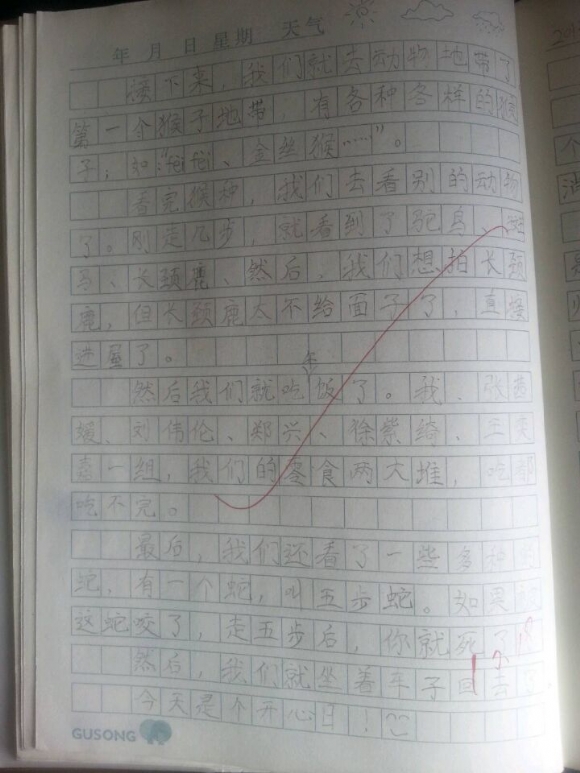 年 月 日 星期 天气
接下来，我们就去动物地带了
第一个猴子地带，有各种各样的猴
子，如:"狒狒、金丝猴……"。
看完猴种，我们去看别的动物
了。刚走几步，就看到了鸵鸟、斑
马、长颈鹿、然后，我们想拍长颈
鹿，但长颈鹿太不给面子了，直接
进屋了。
然后我们就吃午饭了。我、张
媛、刘伟伦、郑兴、徐紫绮、王奕
嘉一组，我们的零食两大堆，吃都
吃不完。
最后，我们还看了一些多种的
蛇，有一个蛇，叫五步蛇。如果
这蛇咬了，走五步后，你就死了
然后，我们就坐着车子回去了
今天是个开心日！
GUSONG